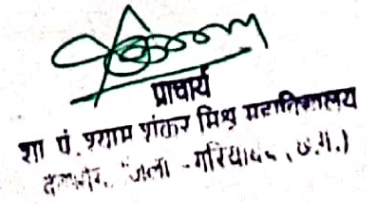 प्राचार्य
शा पं. श्याम शंकर मिश्र महाविद्यालय
जिला - गरियाबंद, छ.ग.)